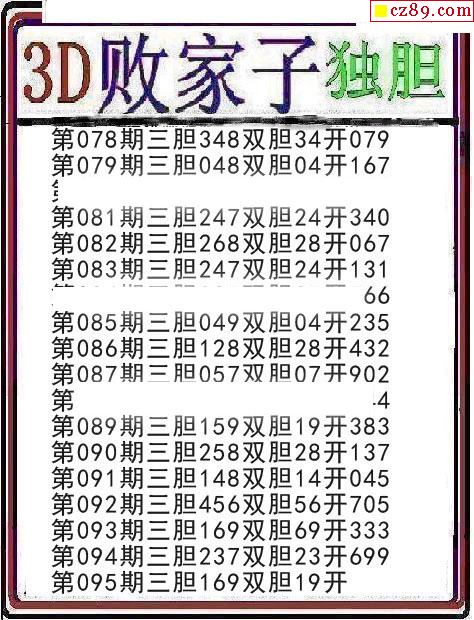 cz89.com
3D败家子独胆
第078期三胆348双胆34开079
第079期三胆048双胆04开167
第081期三胆247双胆24开340
第082期三胆268双胆28开067
第083期三胆247双胆24开131
66
第085期三胆049双胆04开235
第086期三胆128双胆28开432
第087期三胆057双胆07开902
第 4
第089期三胆159双胆19开383
第090期三胆258双胆28开137
第091期三胆148双胆14开045
第092期三胆456双胆56开705
第093期三胆169双胆69开333
第094期三胆237双胆23开699
第095期三胆169双胆19开